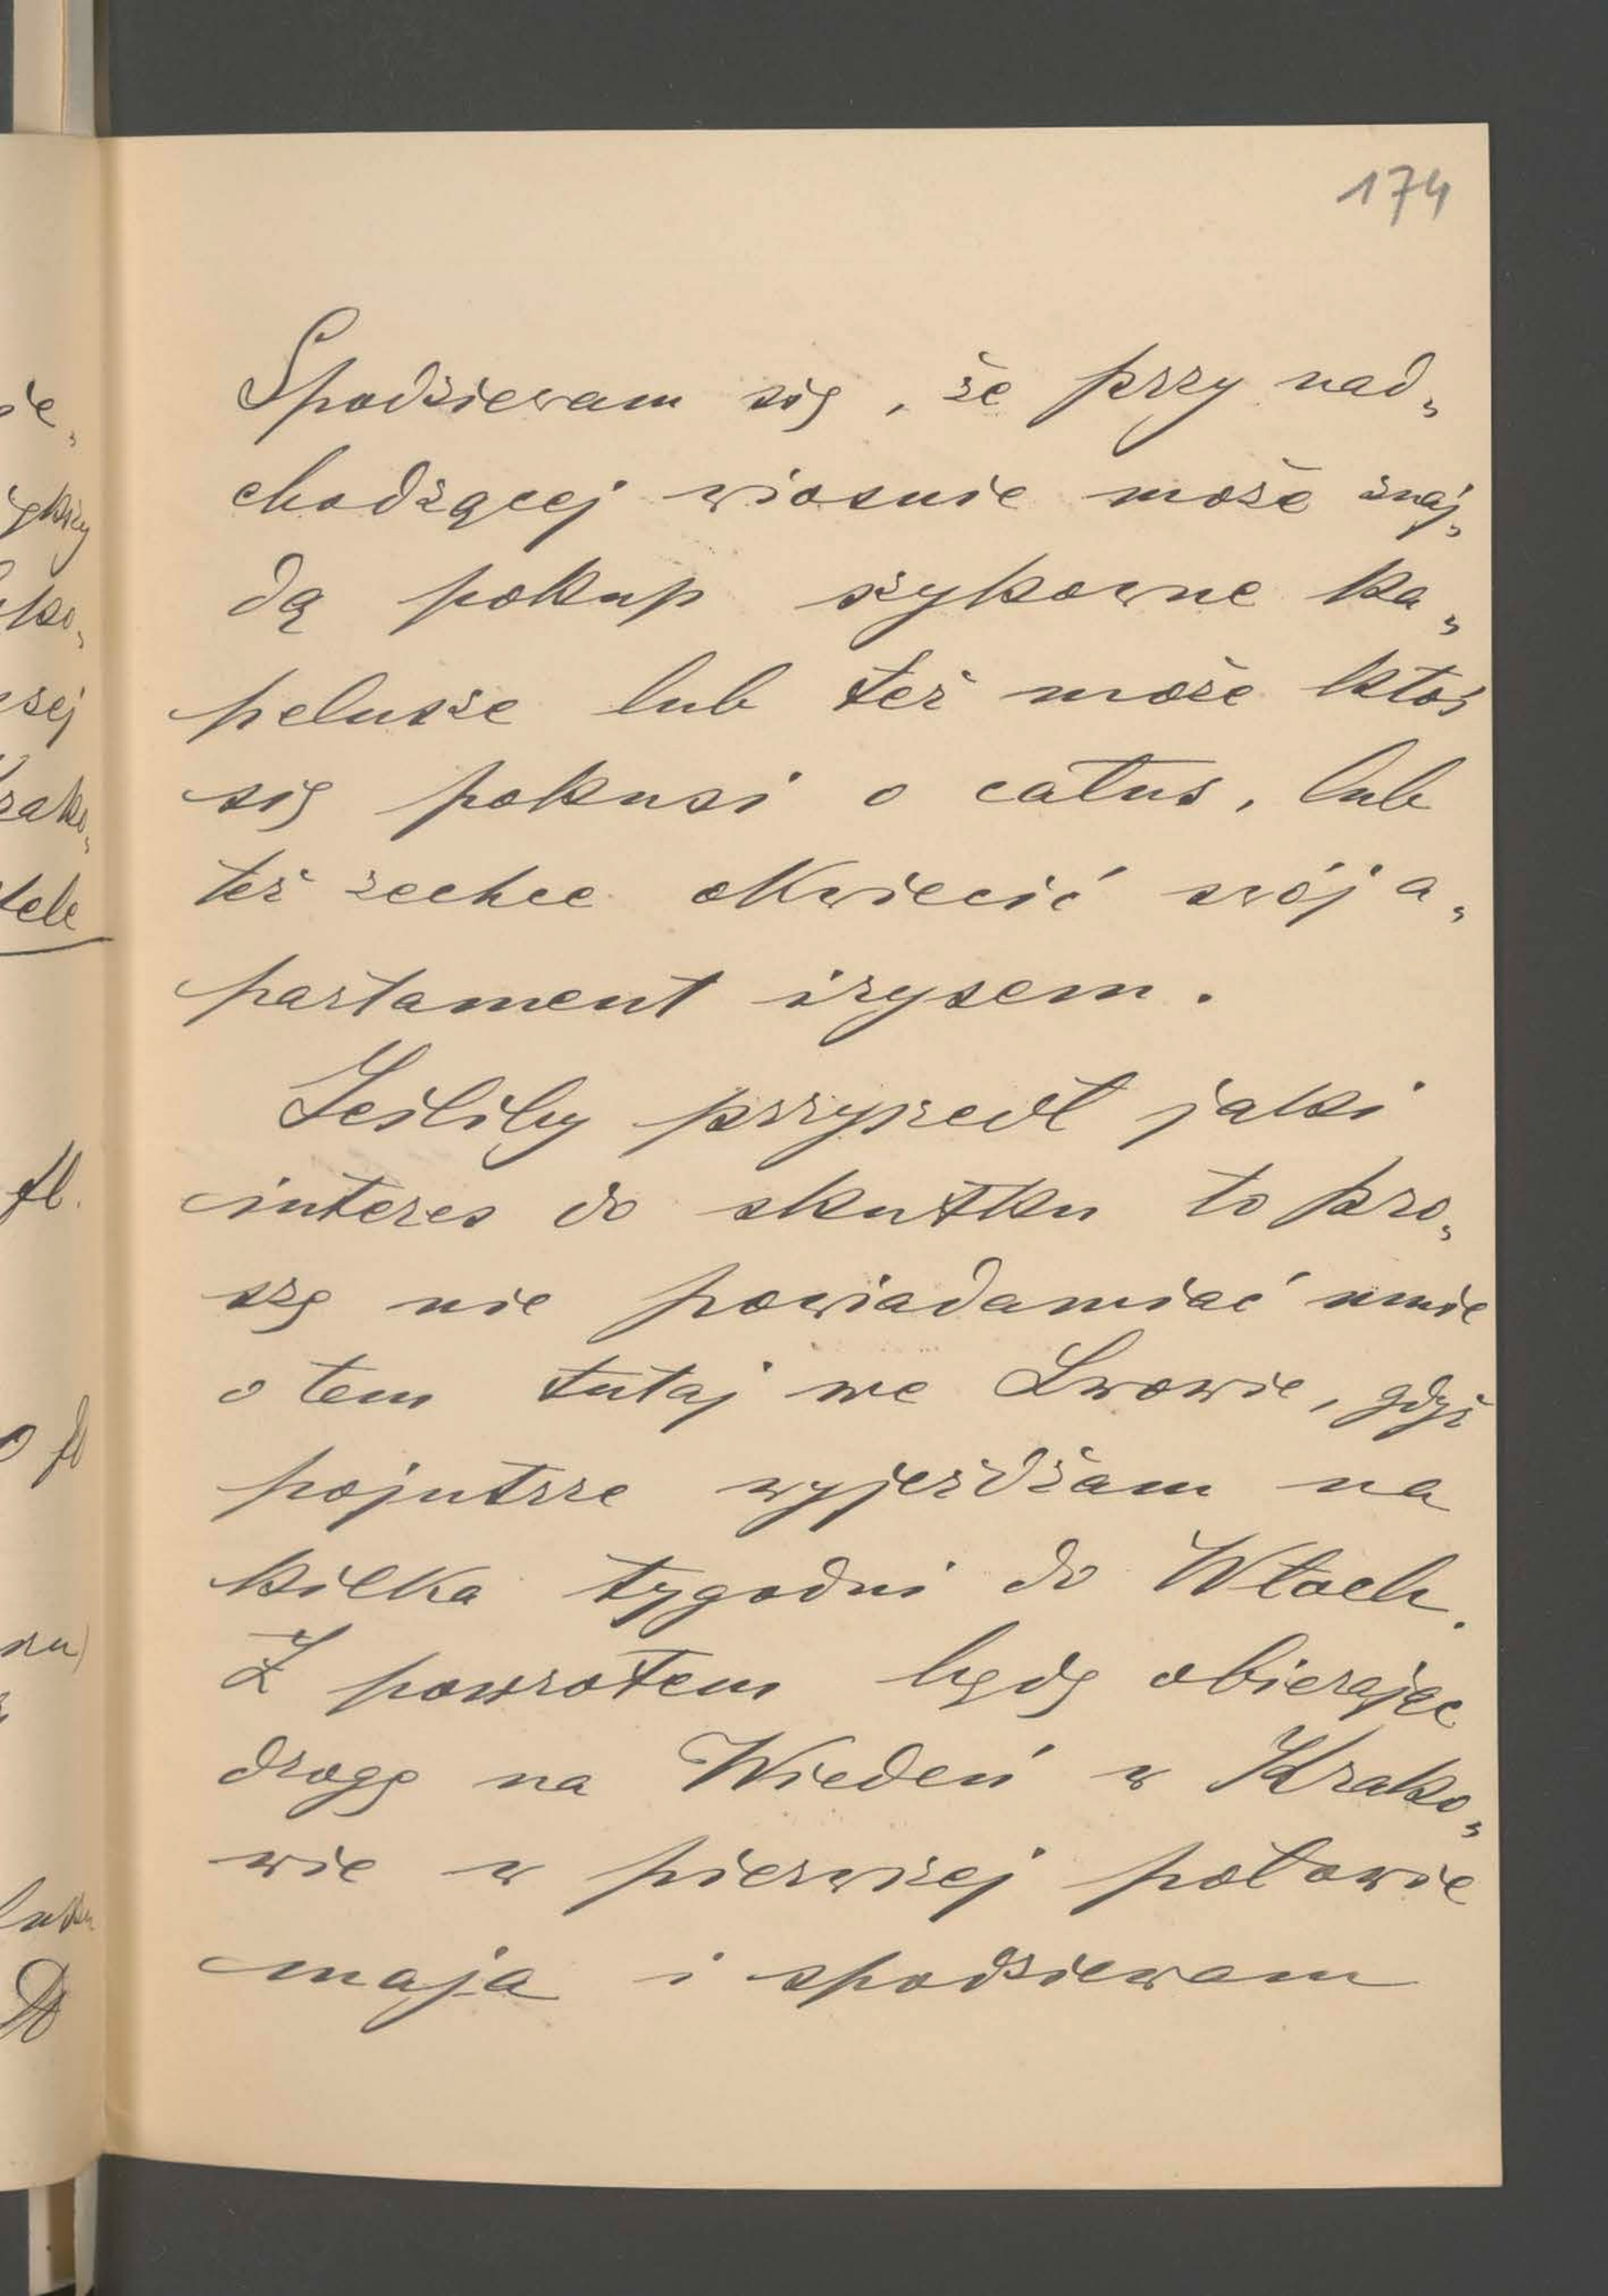 174
Spodziewam się, że przy nad„
chodzącej wiosnie może znaj„
dą pokup szykowne ka„
pelusze lub też może ktoś
się pokusi o całus, lub
też zechce okwiecić swój a„
partament irysem.
Jeśliby przyszedł jaki
interes do skutku to pro„
szę nie powiadamiać mnie
o tem tutaj we Lwowie, gdyż
pojutrze wyjeżdżam na
kilka tygodni do Włoch.
Z powrotem będę obierając
drogę na Wiedeń w Krako„
wie w pierwszej połowie
maja i spodziewam